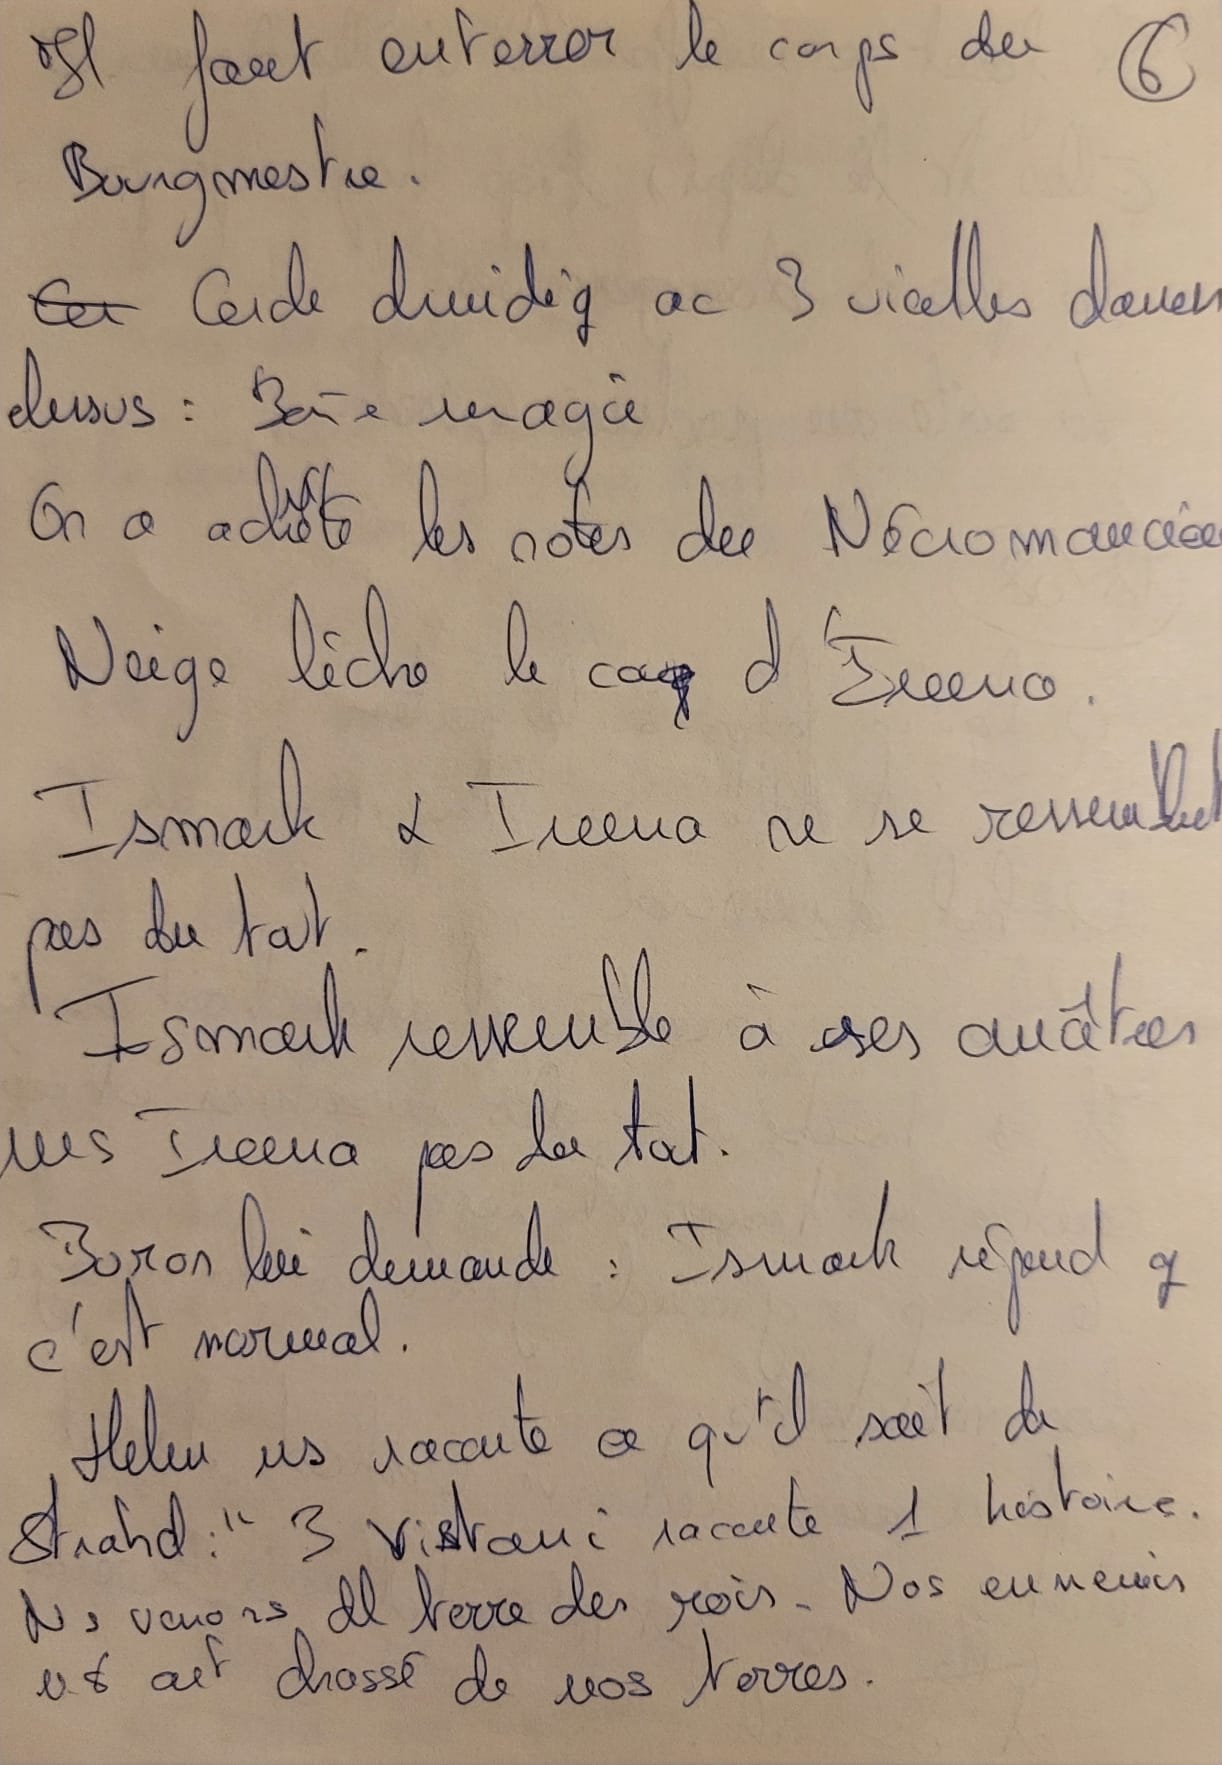 Il faut enterrer le corps du 6
Bourgmestre.
Cercle druidiq ac 3 vieilles dames
dessus : magie
On a acheté les notes du Nécromancien
Neige lèche le d'Ireena.
Ismark & Ireena ne se ressemblent
pas du tout.
Ismark ressemble à ses ancêtres
mais Ireena pas du tout.
Boron lui demande : Ismark répond q
c'est normal.
Helm ns raconte ce qu'il sait de
Strahd : " 3 Vistani raconte 1 histoire.
Ns venons dl terre des rois. Nos ennemis
ns ont chassé de nos terres.